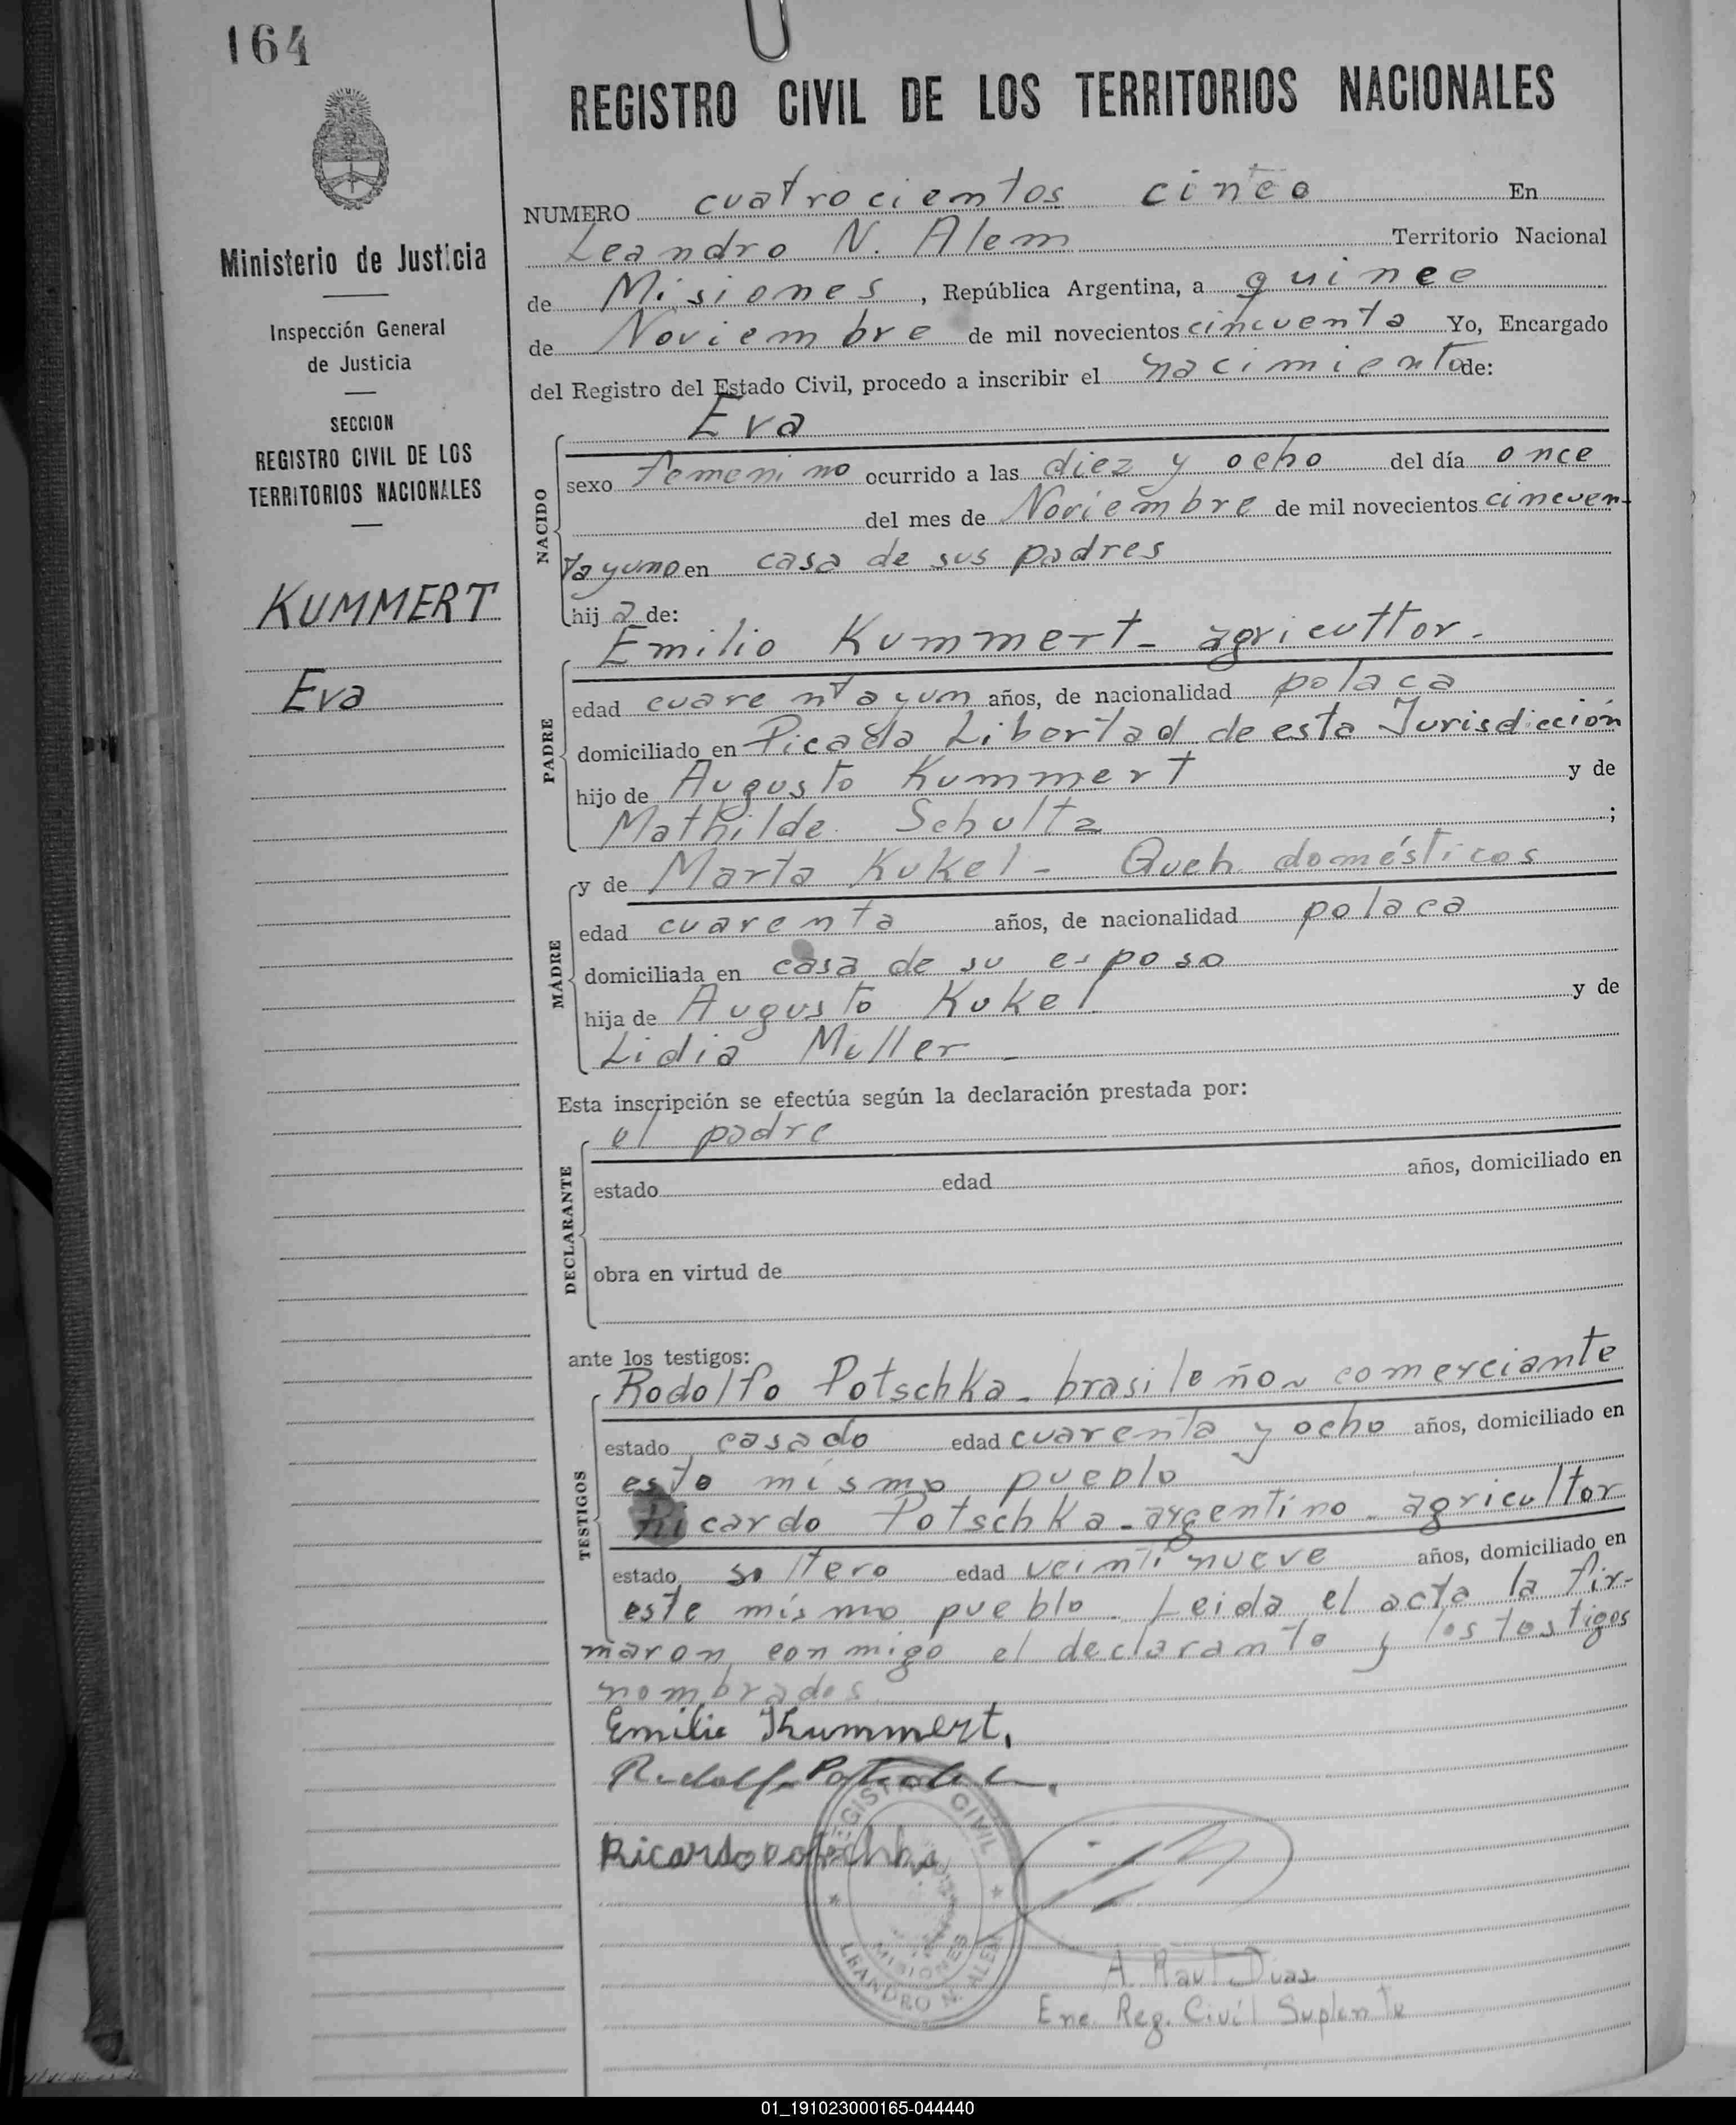 164
REGISTRO CIVIL DE LOS TERRITORIOS NACIONALES
Ministerio de Justicia
Inspección General
de Justicia
SECCION
REGISTRO CIVIL DE LOS
TERRITORIOS NACIONALES
KUMMERT
Eva
NUMERO cuatrocientos cinco En
Leandro N. Alem Territorio Nacional
de Misiones, República Argentina, a quince
de Noviembre de mil novecientos cincuenta Yo, Encargado
del Registro del Estado Civil, procedo a inscribir el nacimiento de:
NACIDO
Eva
sexo femenino ocurrido a las diez y ocho del día once
del mes de Noviembre de mil novecientos cincuen-
ta y uno en casa de sus padres
hija de:
PADRE
Emilio Kummert - agricultor -
edad cuarenta y un años, de nacionalidad polaca
domiciliado en Picada Libertad de esta Jurisdicción
hijo de Augusto Kummert y de
Mathilde Schultz ;
MADRE
y de Marta Kukel - Queh. domésticos
edad cuarenta años, de nacionalidad polaca
domiciliada en casa de su esposo
hija de Augusto Kukel y de
Lidia Muller -
Esta inscripción se efectúa según la declaración prestada por:
DECLARANTE
el padre
estado edad años, domiciliado en
obra en virtud de
ante los testigos:
TESTIGOS
Rodolfo Potschka - brasileño - comerciante
estado casado edad cuarenta y ocho años, domiciliado en
este mismo pueblo
Ricardo Potschka - argentino - agricultor
estado soltero edad veintinueve años, domiciliado en
este mismo pueblo. Leida el acta la fir-
maron conmigo el declarante y los testigos
nombrados
Emilio Kummert.
Rodolfo Potschka.
Ricardo Potschka
REGISTRO CIVIL
MISIONES
LEANDRO N. ALEM
A. Raul Dias
Enc. Reg. Civil Suplente
01_191023000165-044440